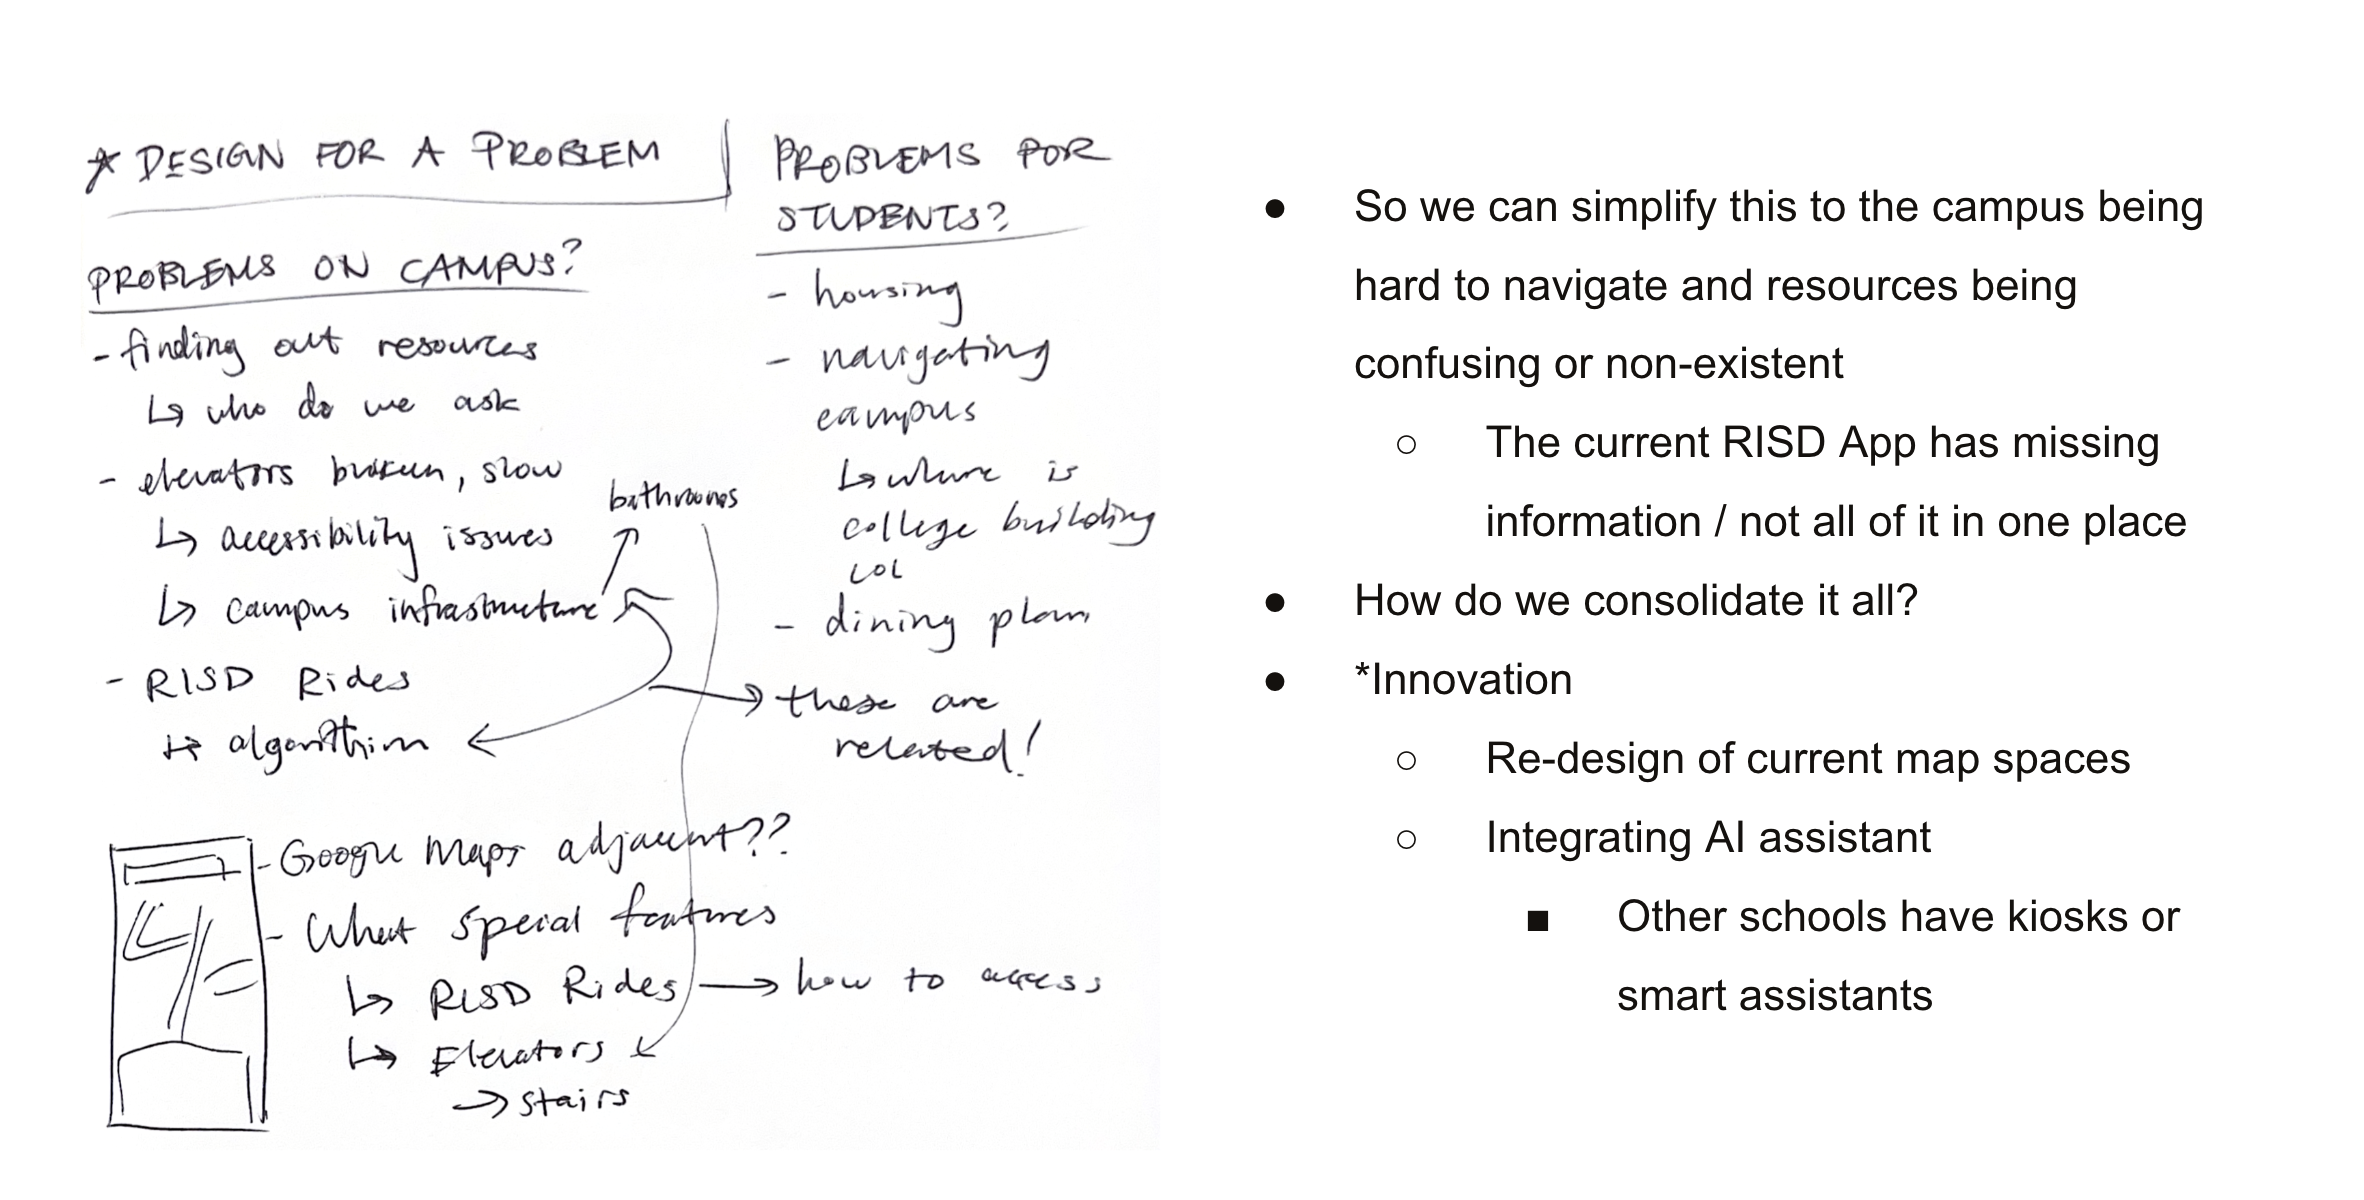 * DESIGN FOR A PROBLEM
PROBLEMS ON CAMPUS?
- finding out resources
↳ who do we ask
- elevators broken, slow
↳ accessibility issues
↳ campus infrastructure
bathrooms
- RISD Rides
↳ algorithim
PROBLEMS FOR
STUDENTS?
- housing
- navigating
campus
↳ where is
college building
LOL
- dining plan
→ these are
related!
- Google Maps adjacent??
- What special features
↳ RISD Rides → how to access
↳ Elevators
→ stairs
● So we can simplify this to the campus being
hard to navigate and resources being
confusing or non-existent
○ The current RISD App has missing
information / not all of it in one place
● How do we consolidate it all?
● *Innovation
○ Re-design of current map spaces
○ Integrating AI assistant
■ Other schools have kiosks or
smart assistants